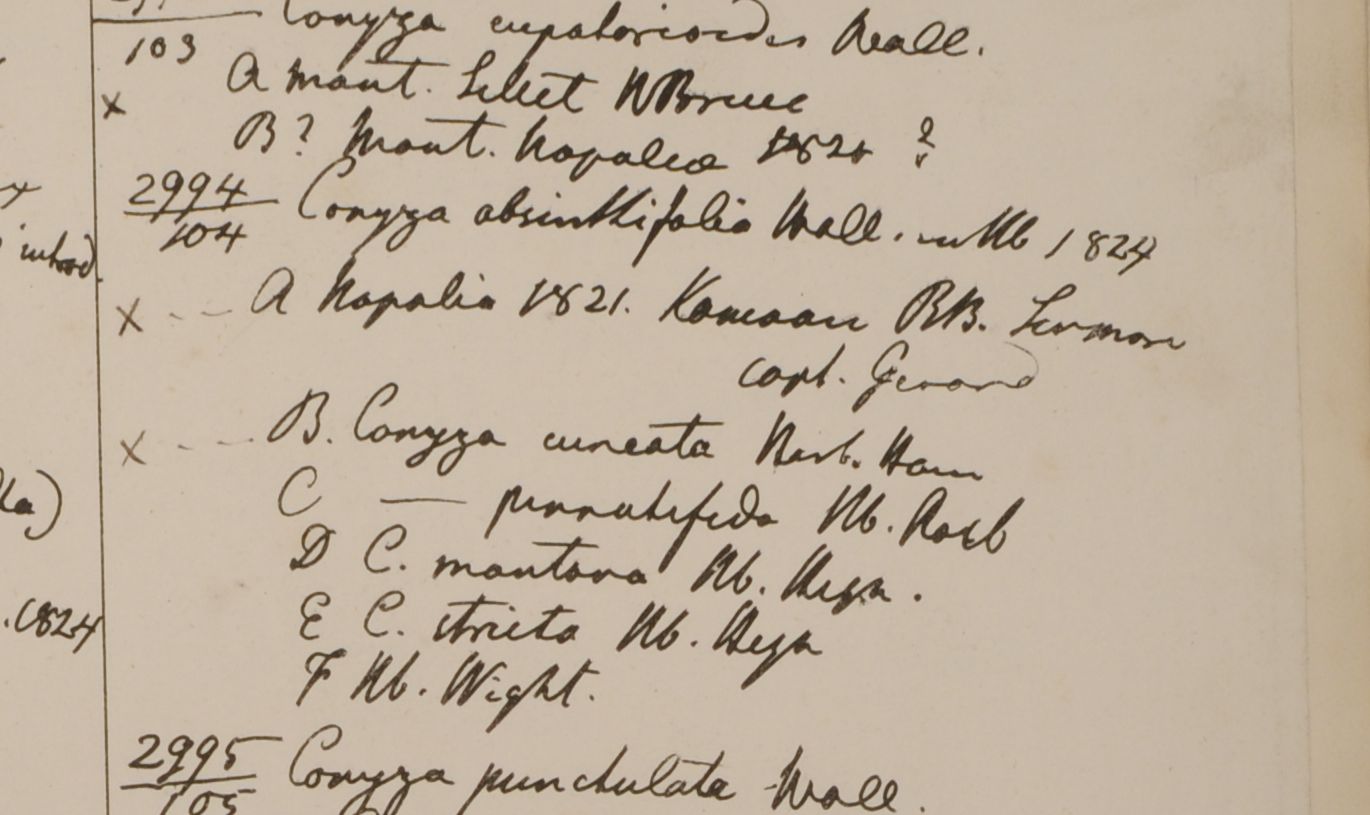 103 Conyza eupatorioides Wall.
A Mont. Sillet WBruce
x B? Mont. Napalia 1821 ?
2994
104 Conyza absinthifolia Wall. in Hb 1824
x A Napalia 1821. Kamaon RB.
Capt. Gerard
x B. Conyza cuneata Herb. Ham
C — pinnatifida Hb. Roxb
D C. montana Hb. Heyn.
E C. stricta Hb. Heyn
F Hb. Wight.
2995
105 Conyza punctulata Wall.
introd.
la)
.1824